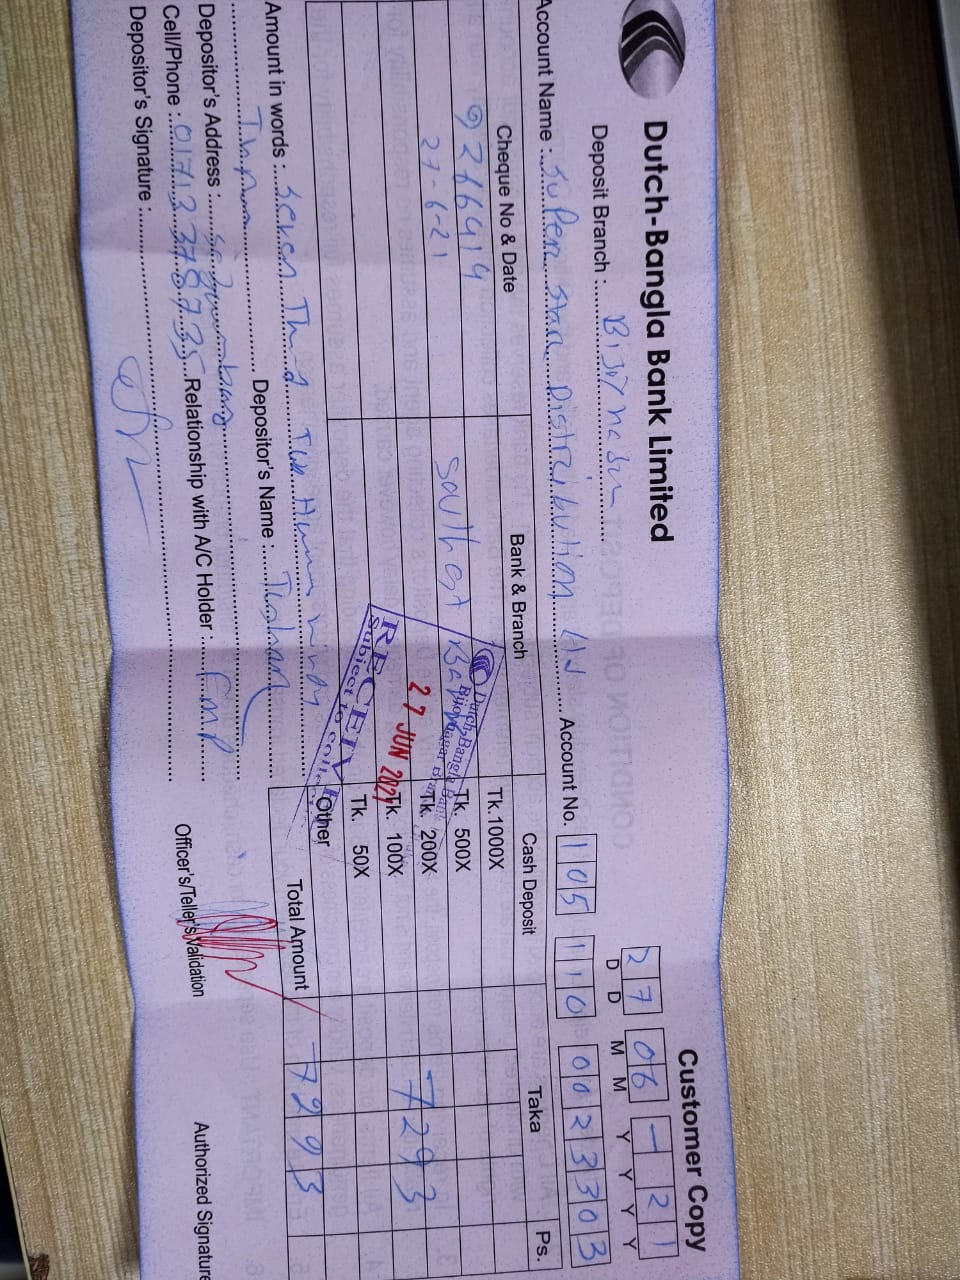 Dutch-Bangla Bank Limited
Customer Copy
27 06 - 21
D D M M Y Y Y Y
Deposit Branch :
Account Name : Super Star Distribution Ltd Account No. 105 110 0023303
Cheque No & Date Bank & Branch Cash Deposit Taka Ps.
Tk.1000X
South est Bank Tk. 500X
27-6-21 Tk. 200X 7293
Tk. 100X
Tk. 50X
Other
Dutch-Bangla Bank
Bijoynagar Branch
27 JUN 2021
RECEIVE
Subject to colle
Total Amount 7293
Amount in words : Seven Two
Depositor's Name : Tushar
Depositor's Address :
Cell/Phone : 01713378735 Relationship with A/C Holder :
Depositor's Signature :
Officer's/Teller's Validation
Authorized Signature